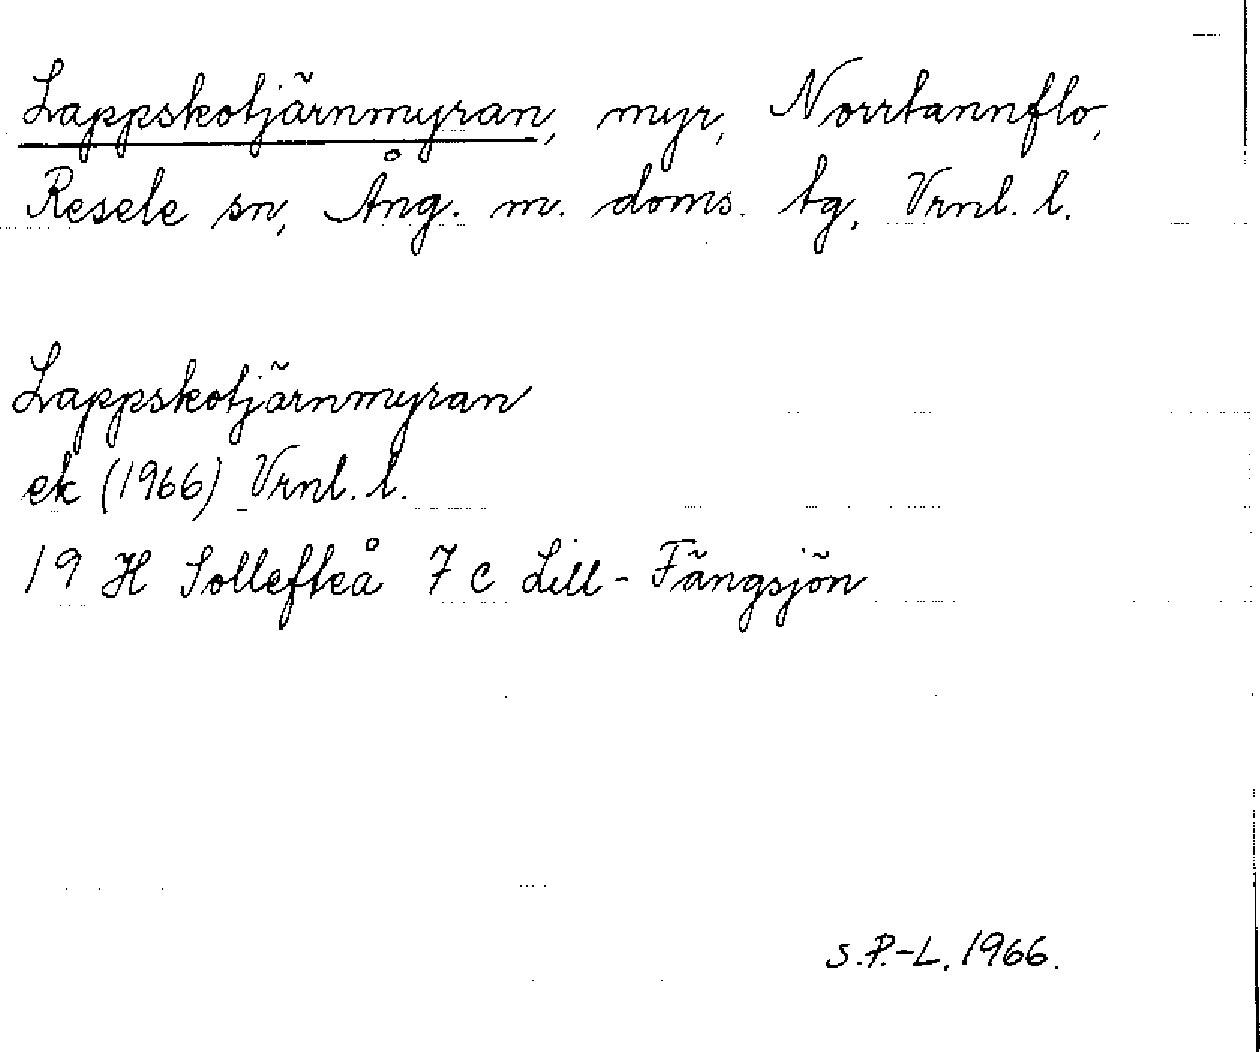 Lappskotjärnmyran, myr, Norrtannflo,
Resele sn, Ång. m. doms. tg, Vrnl. l.
Lappskotjärnmyran
ek (1966) Vrnl. l.
19 H Sollefteå 7 c Lill-Fängsjön
S.P.-L. 1966.